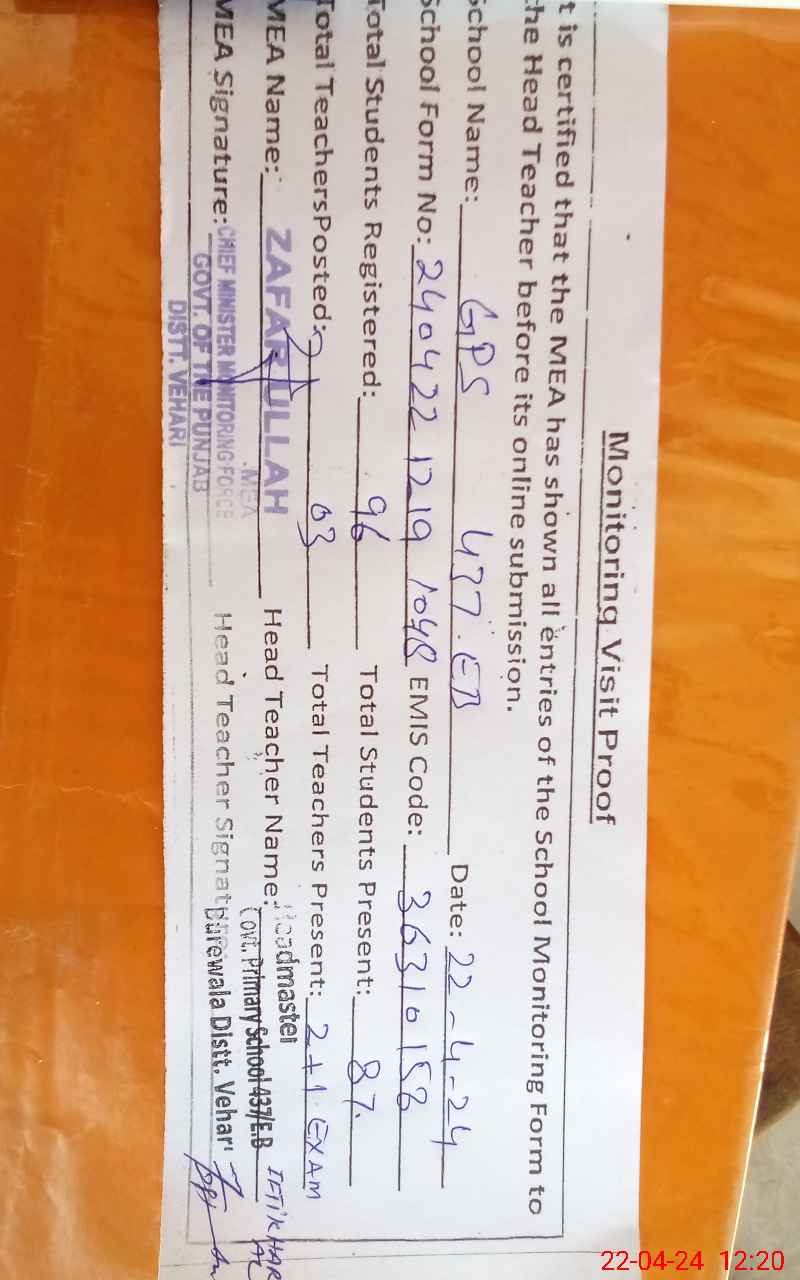 Monitoring Visit Proof
t is certified that the MEA has shown all entries of the School Monitoring Form to
the Head Teacher before its online submission.
School Name: GPS 437.EB Date: 22-4-24
School Form No: 240422 1219 1048 EMIS Code: 36310158
Total Students Registered: 96 Total Students Present: 87
Total TeachersPosted: 03 Total Teachers Present: 2+1 EXAM
MEA Name: ZAFAR ULLAH Head Teacher Name: Headmaster IFTIKHAR
MEA
Govt. Primary School 437/E.B
MEA Signature: CHIEF MINISTER MONITORING FORCE Head Teacher Signat Burewala Distt. Vehari
GOVT. OF THE PUNJAB
DISTT. VEHARI
22-04-24 12:20